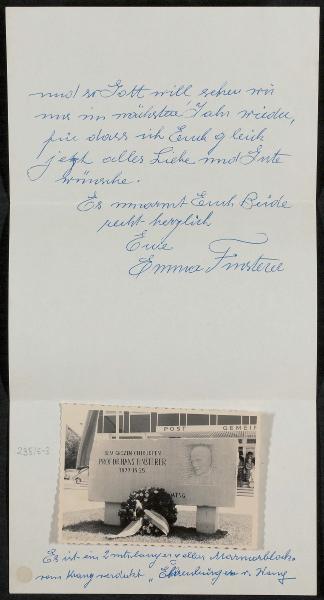 und so Gott will sehen wir
uns im nächsten Jahr wieder,
für dass ich Euch gleich
jetzt alles Liebe und Gute
wünsche.
Es umarmt Euch Beide
recht herzlich
Eure
Emma Finsterer
POST GEMEIN
DEM GROZEN CHIRURGEN
PROF. DR. HANS FINSTERER
1877-1955
Es ist ein 2 mtr langer voller Marmorblock
vom Kranz verdeckt „Ehrenbürger v. Weng